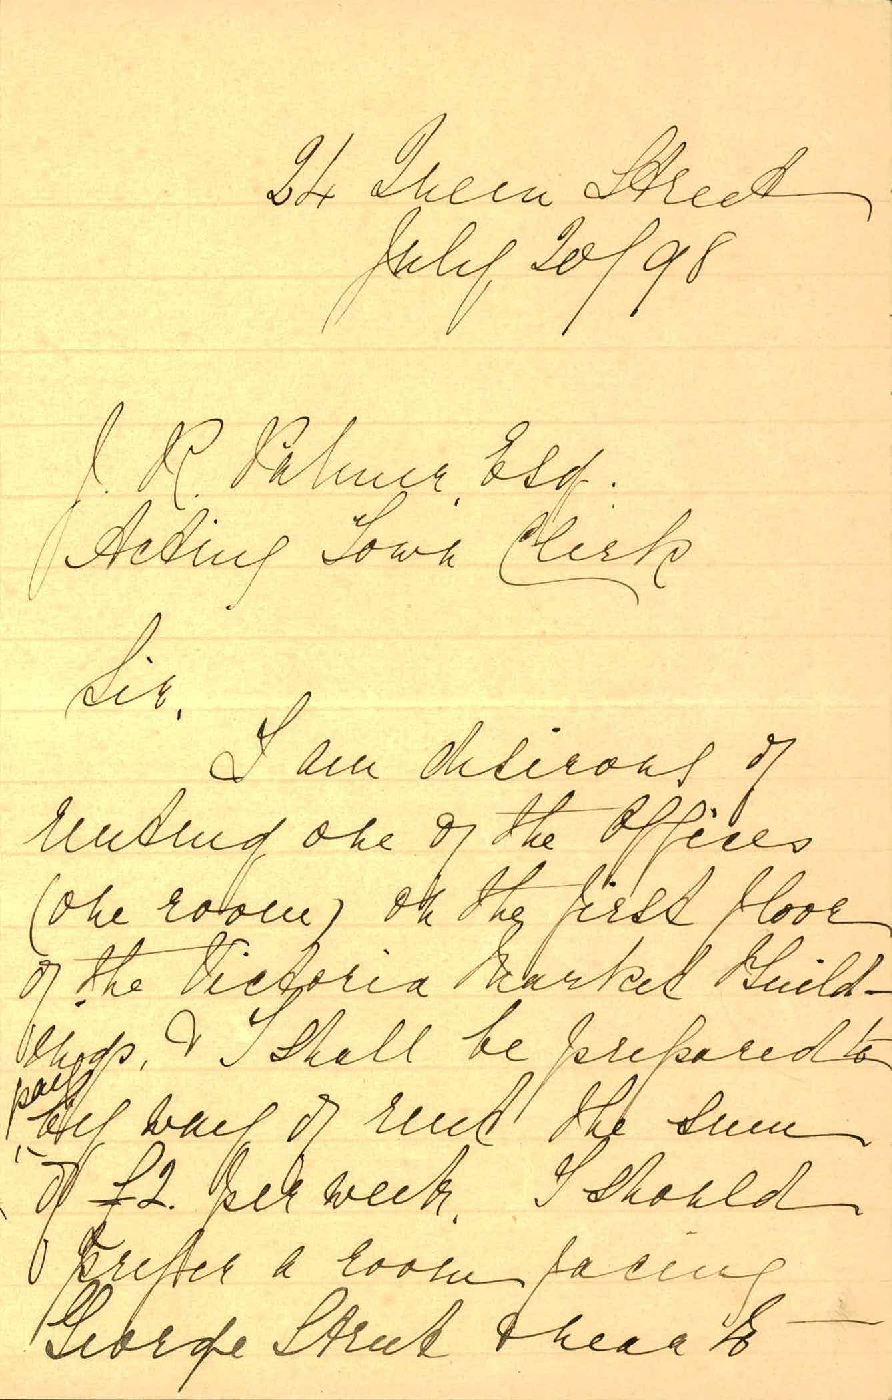 24 Queen Street
July 20/98
J. R. Palmer, Esq.
Acting Town Clerk
Sir,
I am desirous of
renting one of the Offices
(one room) on the first floor
of the Victoria Market Build-
ings, & I shall be prepared to
pay
by way of rent the sum
of £2. per week. I should
prefer a room facing
George Street & near to